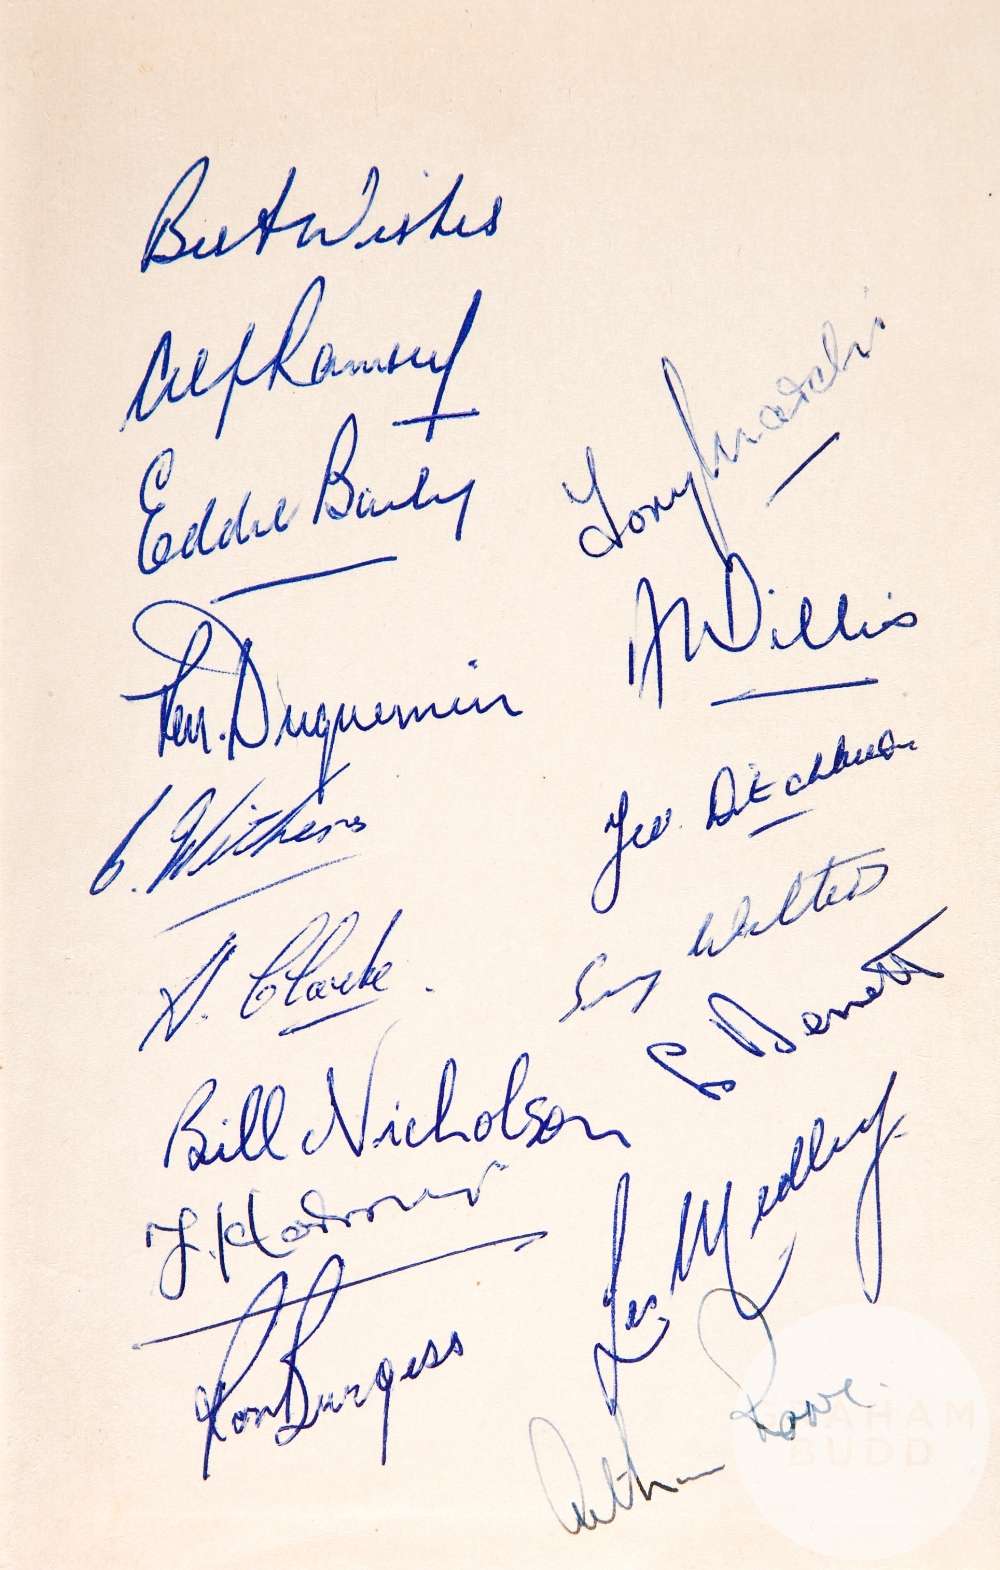 Best Wishes
Alf Ramsey
Eddie Baily
Len. Duquemin
C. Withers
H. Clarke.
Bill Nicholson
Ron Burgess
Tony Marchi
A Willis
Ted. Ditchburn
Sonny Walters
L. Bennett
Les Medley.
Arthur Rowe.
GRAHAM
BUDD